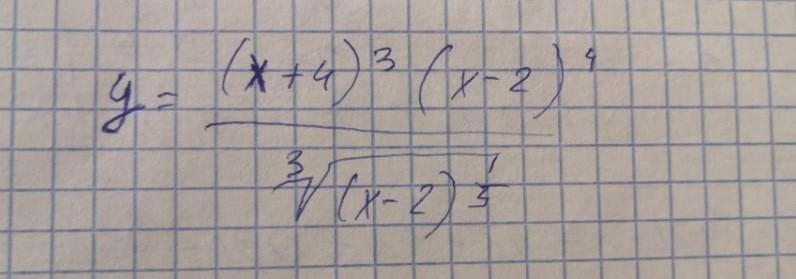 y = (x+4)³ (x-2)⁴
∛(x-2)^(1/3)